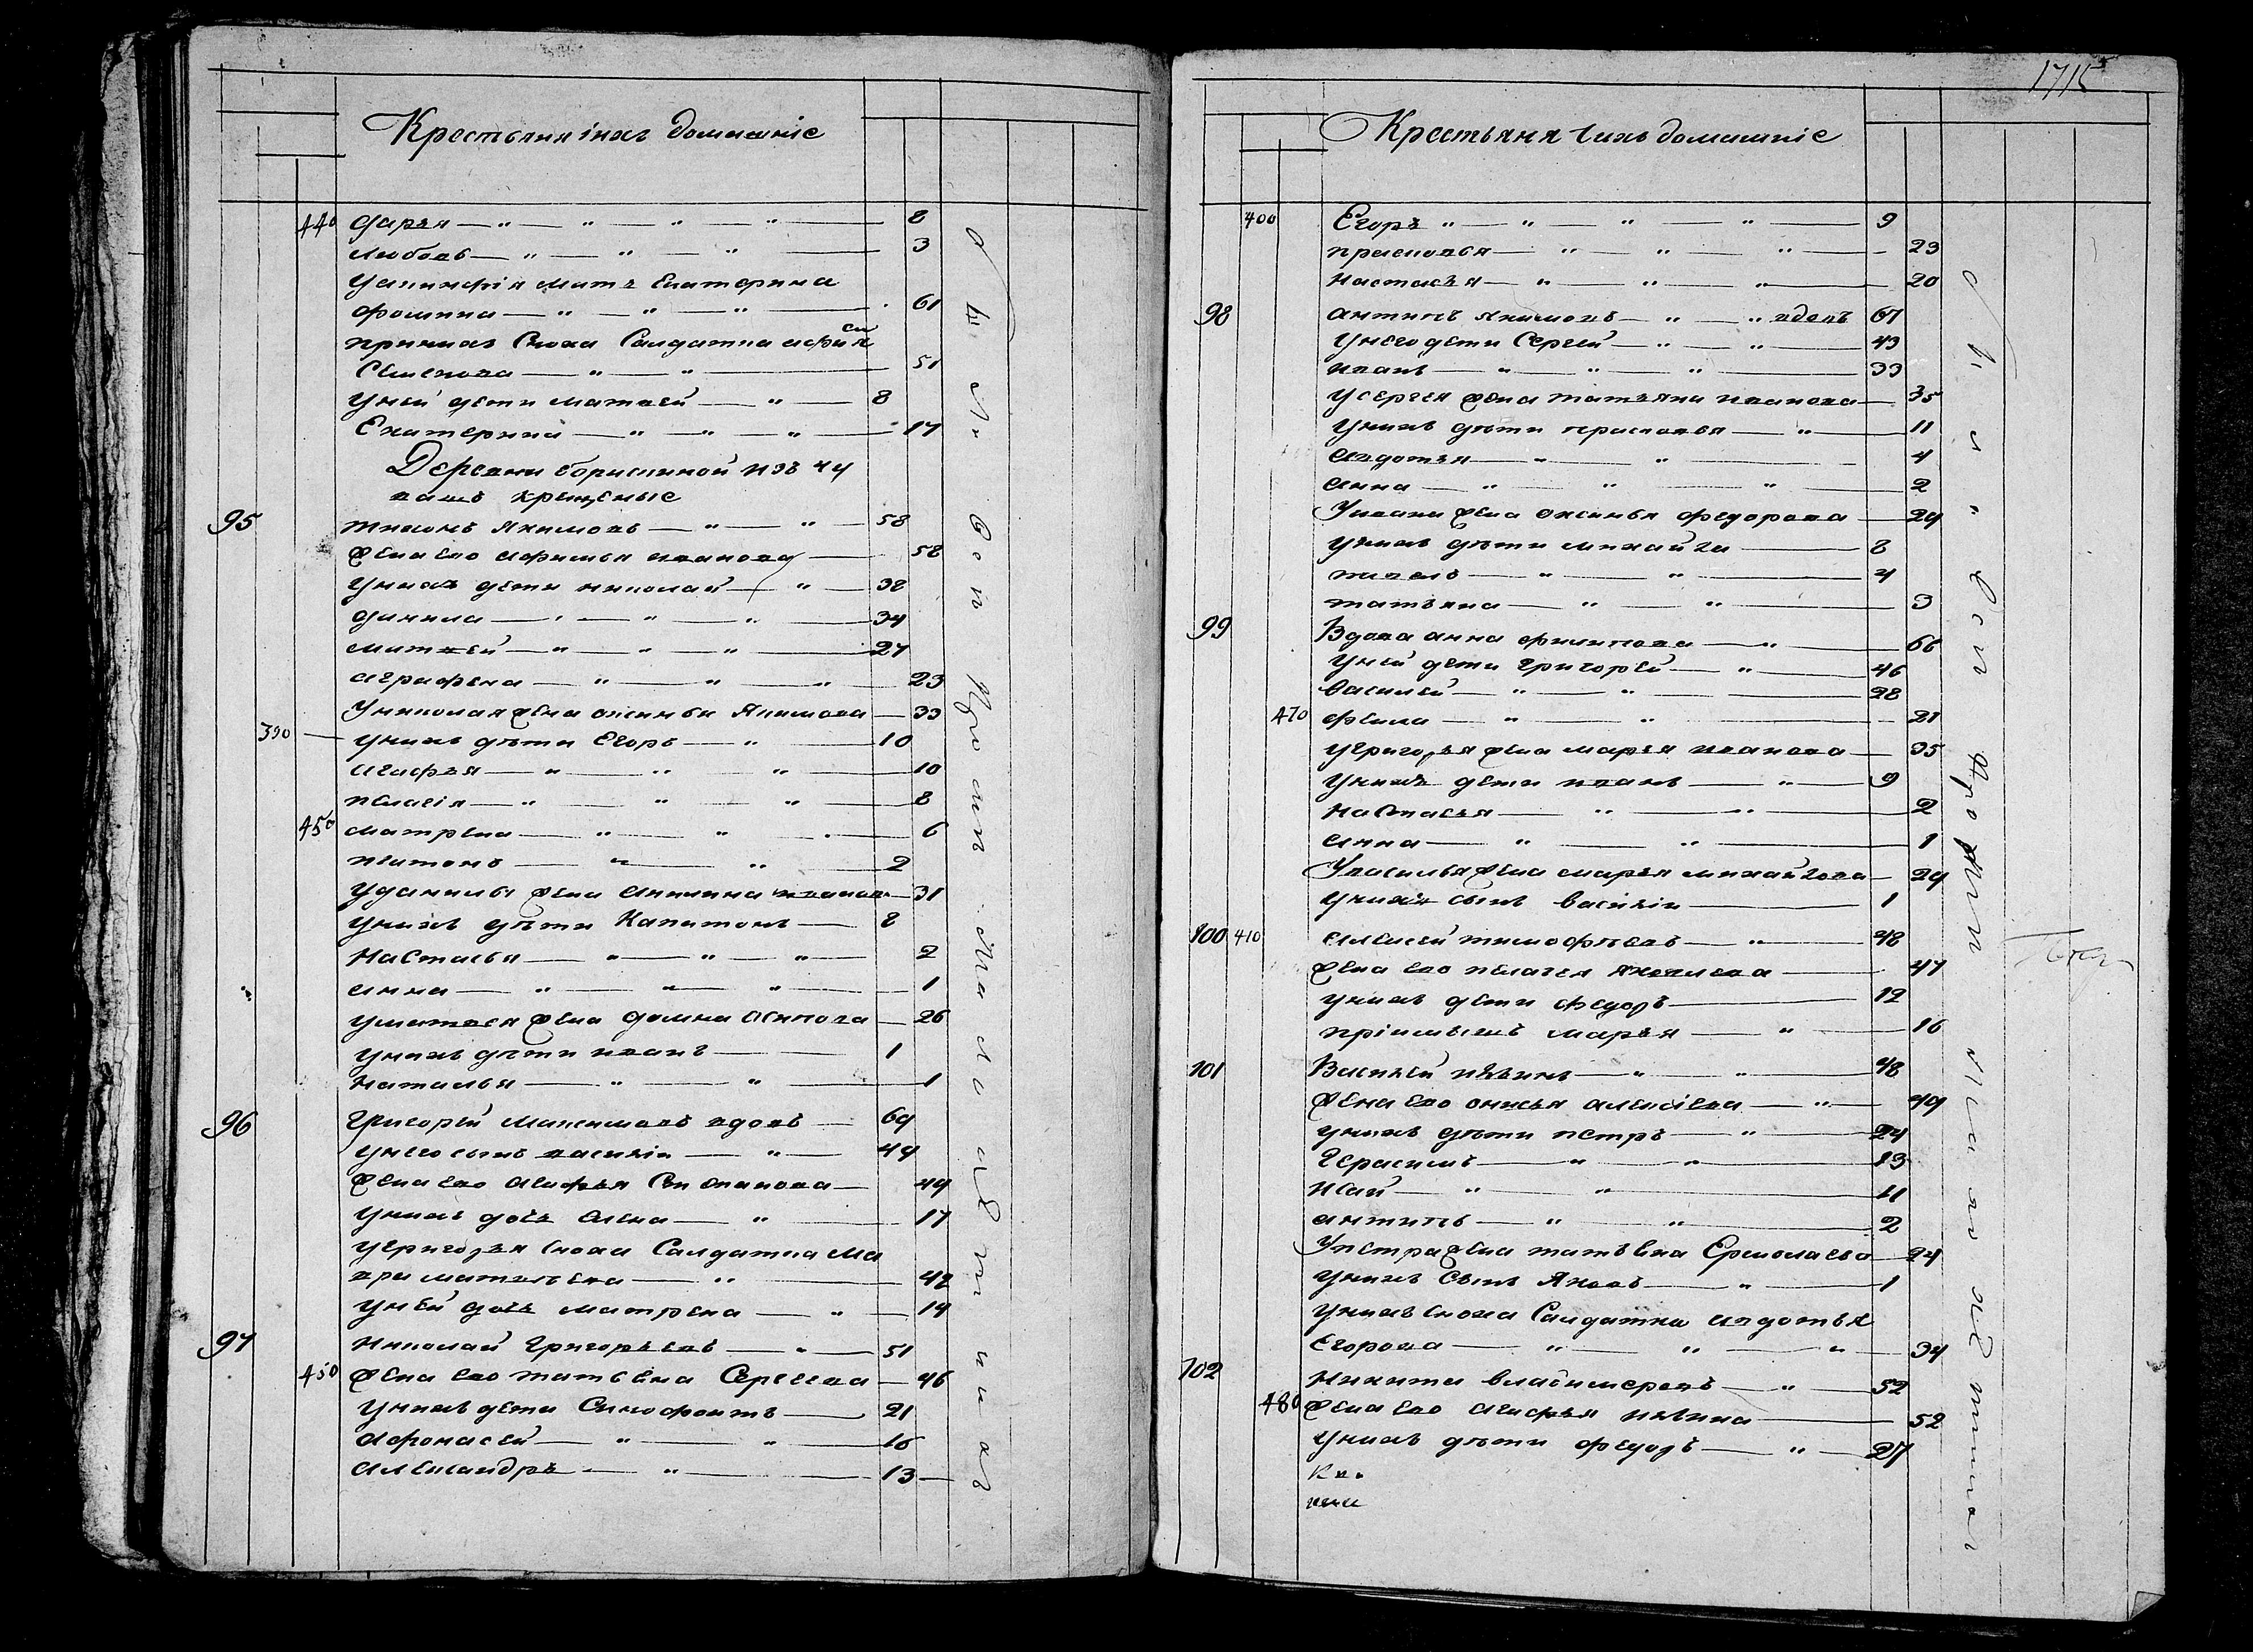 Крестьяня ихъ домашніе
440 Дарья — " — " — " — " — 8
Любовь — " — " — " — 3
У Акинфія мать Екатерина
Фомина — " — " — " — 61
при нихъ сноха салдатка
Семенова — " — " — 51
у ней дети Матвей — " — 8
Екатерина — " — " — " — 17
Деревни
крещеные
95 Тихонъ Якимовъ — " — " — 58
жена ево Афимья Иванова — 58
у нихъ дети Николай — " — 38
Данила — " — " — " — 34
Матвей — " — " — " — 27
Аграфена — " — " — " — 23
У Николая жена Аксинья Якимова — 33
390 у нихъ дѣти Егоръ — " — 10
Агафья — " — " — " — 10
Пелагія — " — " — " — 8
450 Матрена — " — " — " — 6
Платонъ — " — " — 2
У Данилы жена Акилина Иванова — 31
у нихъ дѣти Капитонъ — 8
Настасья — " — " — " — 2
Анна — " — " — " — 1
у Матвея жена Домна Осипова — 26
у нихъ дѣти Иванъ — 1
Наталья — " — " — 1
96 Григорей Максимовъ вдовъ — 69
у него сынъ Василій — " — 49
жена ево Агафья Степанова — 49
у нихъ дочь Елена — " — 17
у Григорья сноха салдатка Ма
вра Матвеева — " — 42
у ней дочь Матрена — " — 14
97 Николай Григорьевъ — " — 51
450 жена ево Татьяна Сергеева — 46
у нихъ дети Ксенофонтъ — 21
Афонасей — " — " — 16
Александръ — " — 13
1715
Крестьяня ихъ домашніе
400 Егоръ " — " — " — " — 9
Прасковья — " — " — " — 23
Настасья — " — " — " — 20
98 Антипъ Якимовъ — " — " вдовъ 67
У него дети Сергей — " — " — 43
Иванъ — " — " — " — 33
У Сергея жена Татьяна Иванова — 35
У нихъ дѣти Прасковья — " — 11
Авдотья — " — " — 4
Анна — " — " — " — 2
У Ивана жена Аксинья Федорова — 29
У нихъ дѣти Михайла — 8
— " — " — 4
Татьяна — " — " — 3
99 Вдова Анна Филипова — " — 66
У ней дети Григорей — " — 46
Василей — " — " — 28
470 Фекла — " — " — 21
У Григорья жена Марья Иванова — 35
У нихъ дети Иванъ — " — 9
Настасья — " — " — 2
Анна — " — " — 1
У Василья жена Марья Михайлова — 29
У нихъ сынъ Василій — 1
100 410 Алексей Тимофѣевъ — " — 48
жена ево Пелагея Яковлева — 47
у нихъ дети Федоръ — 12
пріимышъ Марья — " — 16
101 Василей Ильинъ — " — " — 48
жена ево Онисья Алексіева — " — 49
у нихъ дѣти Петръ — " — 24
Герасимъ — " — " — 13
Исай — " — " — 11
Антипъ — " — " — 2
У Петра жена Татьяна Ермолаева 24
У нихъ сынъ Яковъ — " — 1
У нихъ сноха салдатка Авдотья
Егорова — " — " — " — 34
102 Никита Владимеровъ — " — 52
480 жена ево Агафья Ильина — 52
У нихъ дѣти Федоръ — " — 27